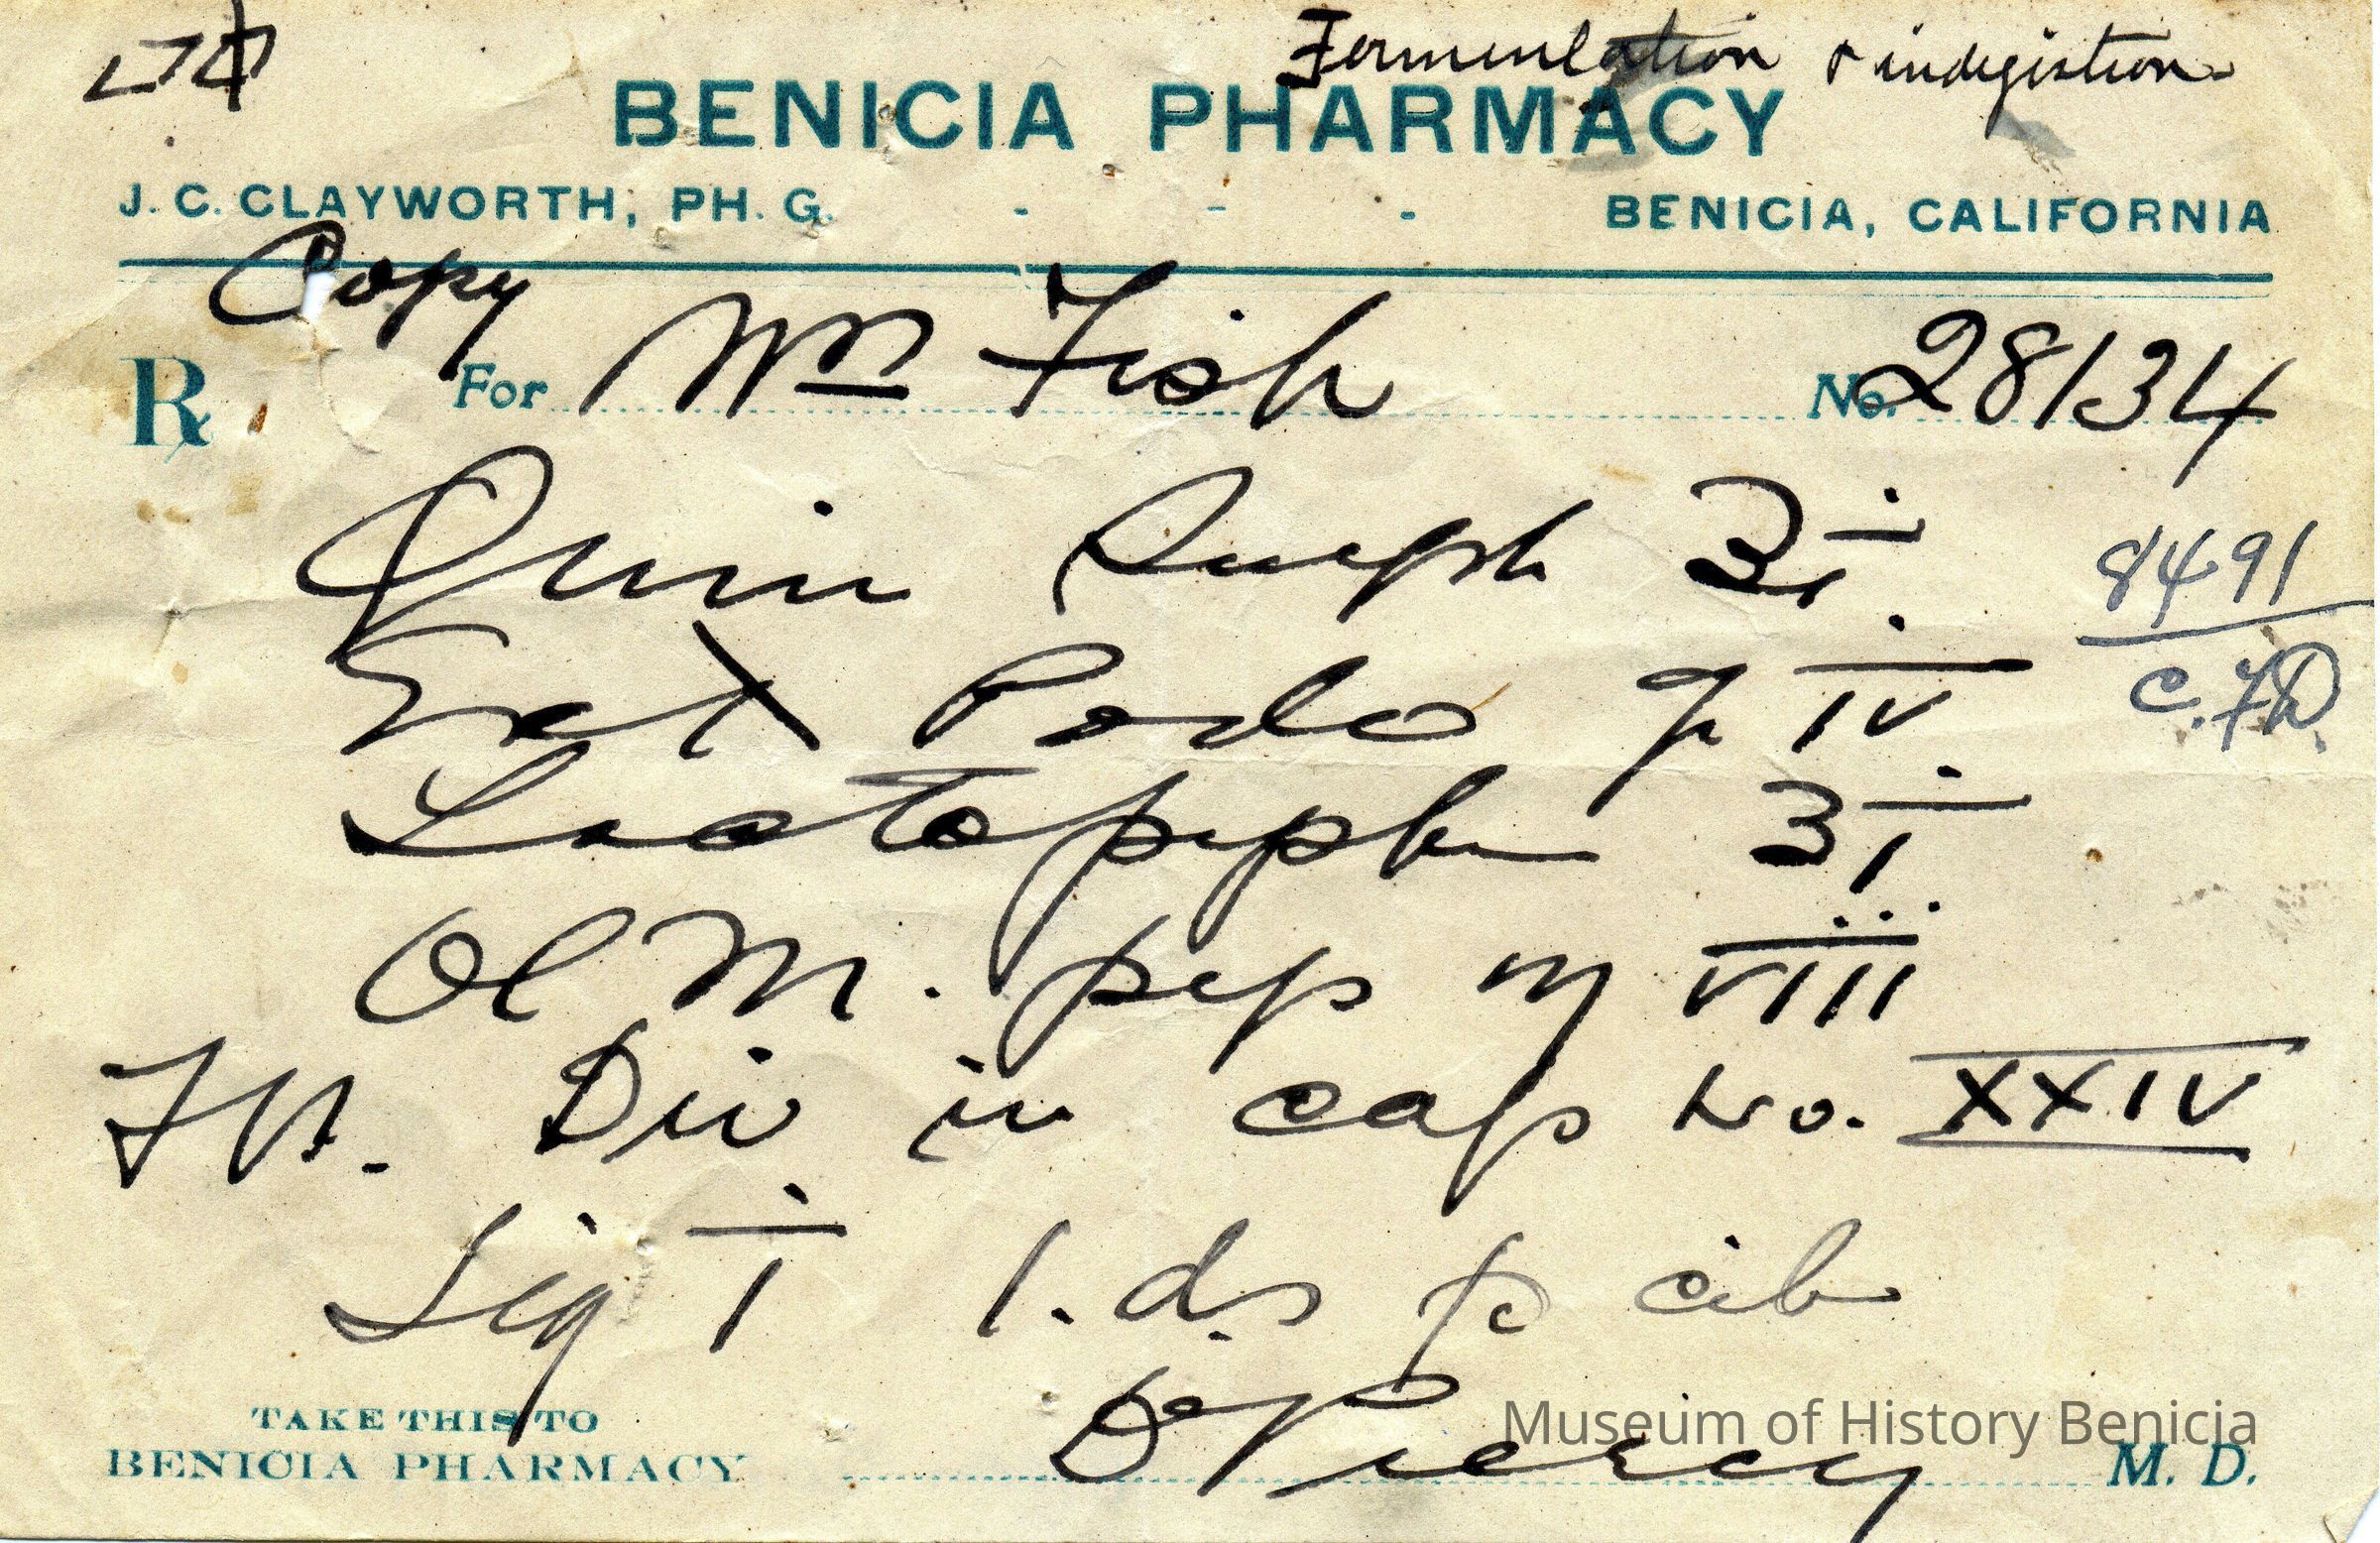 Fermentation & indigistion
BENICIA PHARMACY
J. C. CLAYWORTH, PH. G. - - - BENICIA, CALIFORNIA
Copy
R For Wm Fish No. 28134
Quin Sulph ʒi
8491
Ext Podo gr IV
C.F.D.
Lactopeptin ʒi
Ol M. pip ♏ VIII
Ft. Div in caps No. XXIV
Sig I t.d.s p cib
TAKE THIS TO
BENICIA PHARMACY
Dr Piercy M. D.
Museum of History Benicia